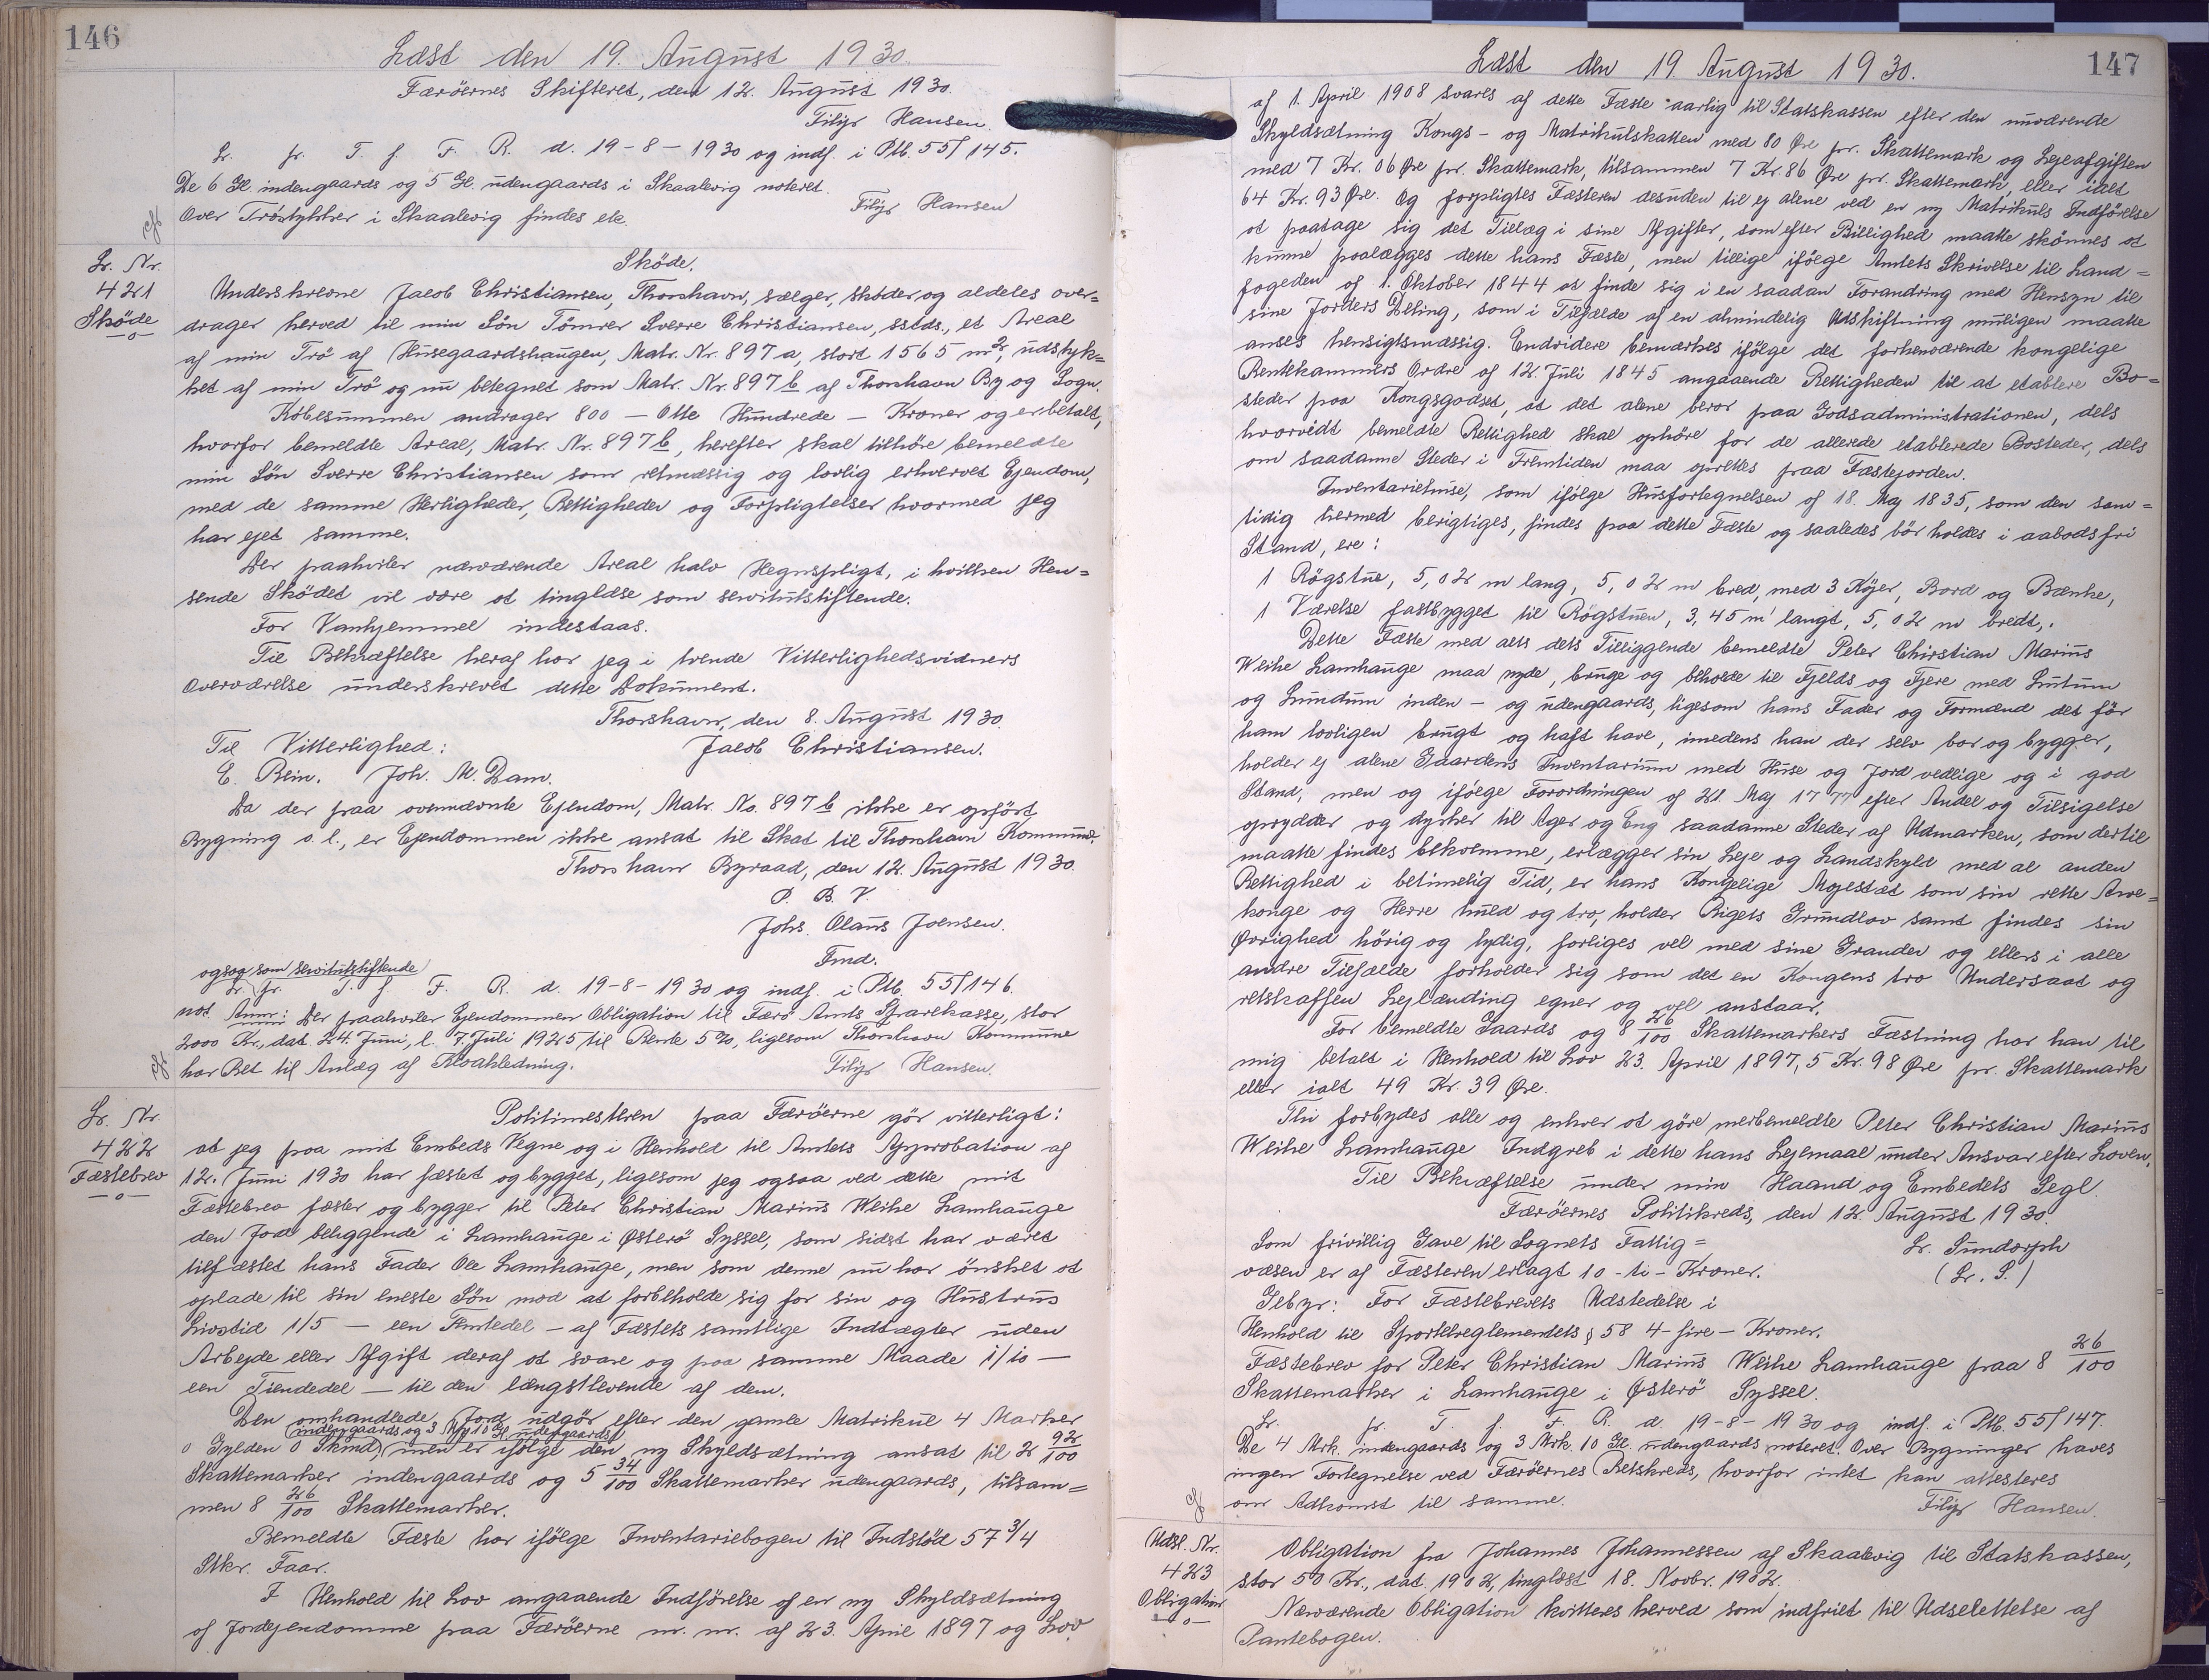 146
Læst den 19. August 1930.
Færöernes Skifteret, den 12. August 1930.
Filip Hansen.
Lr. fr. T. f. F. R. d. 19-8-1930 og indf. i Ptb. 55/145.
De 6 Gl. indengaards og 5 Gl. udengaards i Skaalevig noteret.
Over Tröstykker i Skaalevig findes ek. Filip Hansen
Lr. Nr.
421
Sköde
-o-
Sköde.
Underskrevne Jacob Christiansen, Thorshavn, sælger, sköder og aldeles over=
drager herved til min Sön Tömrer Sverre Christiansen, sstds., et Areal
af min Trö af Husegaardshaugen, Matr. Nr. 897 a, stort 1565 m², udstyk=
ket af min Trö og nu betegnet som Matr. Nr. 897 b af Thorshavn By og Sogn.
Köbesummen andrager 800 - Otte Hundrede - Kroner og er betalt,
hvorfor bemeldte Areal, Matr. Nr. 897 b, herefter skal tilhöre bemeldte
min Sön Sverre Christiansen som retmæssig og lovlig erhvervet Ejendom,
med de samme Herligheder, Rettigheder og Forpligtelser hvormed jeg
har ejet samme.
Der paahviler nærværende Areal halv Hegnspligt, i hvilken Hen=
seende Sködet vil være at tinglæse som servitutstiftende.
For Vanhjemmel indestaas.
Til Bekræftelse heraf har jeg i tvende Vitterlighedsvidners
Overværelse underskrevet dette Dokument.
Thorshavn, den 8. August 1930.
Til Vitterlighed: Jacob Christiansen.
E. Rein. Joh. M. Dam.
Da der paa ovennævnte Ejendom, Matr. No. 897 b ikke er opfört
Bygning o. l., er Ejendommen ikke ansat til Skat til Thorshavn Kommune.
Thorshavn Byraad, den 12. August 1930.
P. B. V.
Johs. Olaus Joensen.
Fmd.
ogsaa som servitutstiftende
Lr. fr. T. f. F. R. d. 19-8-1930 og indf. i Ptb. 55/146.
not. Anm: Der paahviler Ejendommen Obligation til Færö Amts Sparekasse, stor
2000 Kr., dat. 24. Juni, l. 7. Juli 1925 til Rente 5%, ligesom Thorshavn Kommune
har Ret til Anlæg af Kloakledning. Filip Hansen.
Lr. Nr.
422
Fæstebrev
-o-
Politimesteren paa Færöerne gör vitterligt:
at jeg paa mit Embeds Vegne og i Henhold til Amtets Approbation af
12. Juni 1930 har fæstet og bygget, ligesom jeg ogsaa ved dette mit
Fæstebrev fæster og bygger til Peter Christian Marius Weihe Lamhauge
den Jord beliggende i Lamhauge i Østerö Syssel, som sidst har været
tilfæstet hans Fader Ole Lamhauge, men som denne nu har önsket at
oplade til sin eneste Sön mod at forbeholde sig for sin og Hustrus
Livstid 1/5 - een Femtedel - af Fæstets samtlige Indtægter uden
Arbejde eller Afgift deraf at svare og paa samme Maade 1/10 -
een Tiendedel - til den længstlevende af dem.
Den omhandlede Jord udgör efter den gamle Matrikul 4 Marker
indengaards og 3 Mk 10 Gl. udengaards
0 Gylden 0 Skind, men er ifölge den ny Skyldsætning ansat til 2 92/100
Skattemarker indengaards og 5 34/100 Skattemarker udengaards, tilsam=
men 8 26/100 Skattemarker.
Bemeldte Fæste har ifölge Inventariebogen til Indstöd 57 3/4
Stkr. Faar.
I Henhold til Lov angaaende Indförelse af en ny Skyldsætning
af Jordejendomme paa Færöerne m. m. af 23. April 1897 og Lov
147
Læst den 19. August 1930.
af 1. April 1908 svares af dette Fæste aarlig til Statskassen efter den nuværende
Skyldsætning Kongs- og Matrikulskatten med 80 Øre pr. Skattemark og Lejeafgiften
med 7 Kr. 06 Øre pr. Skattemark, tilsammen 7 Kr. 86 Øre pr. Skattemark, eller ialt
64 Kr. 93 Øre. Og forpligtes Fæsteren desuden til ej alene ved en ny Matrikuls Indförelse
at paatage sig det Tillæg i sine Afgifter, som efter Billighed maatte skönnes at
kunne paalægges dette hans Fæste, men tillige ifölge Amtets Skrivelse til Land=
fogeden af 1. Oktober 1844 at finde sig i en saadan Forandring med Hensyn til
sine Jorders Deling, som i Tilfælde af en almindelig Udskiftning muligen maatte
anses hensigtsmæssig. Endvidere bemærkes ifölge det forhenværende kongelige
Rentekammers Ordre af 12. Juli 1845 angaaende Rettigheden til at etablere Bo=
steder paa Kongsgodset, at det alene beror paa Godsadministrationen, dels
hvorvidt bemeldte Rettighed skal ophöre for de allerede etablerede Bosteder, dels
om saadanne Steder i Fremtiden maa oprettes paa Fæstejorden.
Inventariehuse, som ifölge Husfortegnelsen af 18. Maj 1835, som den sam=
tidig hermed berigtiges, findes paa dette Fæste og saaledes bör holdes i aabodsfri
Stand, ere:
1 Rögstue, 5,02 m lang, 5,02 m bred, med 3 Köjer, Bord og Bænke,
1 Værelse fastbygget til Rögstuen, 3,45 m langt, 5,02 m bredt,.
Dette Fæste med alt dets Tilliggende bemeldte Peter Chirstian Marius
Weihe Lamhauge maa nyde, bruge og beholde til Fjelds og Fjere med Lutum
og Lundum inden- og udengaards, ligesom hans Fader og Formænd det för
ham lovligen brugt og haft have, imedens han der selv bor og bygger,
holder ej alene Gaardens Inventarium med Huse og Jord vedlige og i god
Stand, men og ifölge Forordningen af 21. Maj 1777 efter Andel og Tilsigelse
oprydder og dyrker til Ager og Eng saadanne Steder af Udmarken, som dertil
maatte findes bekvemme, erlægger sin Leje og Landskyld med al anden
Rettighed i betimelig Tid, er hans Kongelige Majestæt som sin rette Arve=
konge og Herre huld og tro, holder Rigets Grundlov samt findes sin
Øvrighed hörig og lydig, forliges vel med sine Grander og ellers i alle
andre Tilfælde forholder sig som det en Kongens tro Undersaat og
retskaffen Lejlænding egner og vel anstaar.
For bemeldte Gaards og 8 26/100 Skattemarkers Fæstning har han til
mig betalt i Henhold til Lov 23. April 1897, 5 Kr. 98 Øre pr. Skattemark
eller ialt 49 Kr. 39 Øre.
Thi forbydes alle og enhver at göre merbemeldte Peter Christian Marius
Weihe Lamhauge Indgreb i dette hans Lejemaal under Ansvar efter Loven.
Til Bekræftelse under min Haand og Embedets Segl.
Færöernes Politikreds, den 12. August 1930.
Som frivillig Gave til Sognets Fattig= Lr. Sundorph
væsen er af Fæsteren erlagt 10 -ti- Kroner. (Lr. S.)
Gebyr: For Fæstebrevets Udstedelse i
Henhold til Sportelreglementets § 58 4 -fire- Kroner.
Fæstebrev for Peter Christian Marius Weihe Lamhauge paa 8 26/100
Skattemarker i Lamhauge i Østerö Syssel.
Lr. fr. T. f. F. R. d. 19-8-1930 og indf. i Ptb. 55/147.
De 4 Mrk. indengaards og 3 Mrk. 10 Gl. udengaards noteret. Over Bygninger haves
ingen Fortegnelse ved Færöernes Retskreds, hvorfor intet kan attesteres
om Adkomst til samme. Filip Hansen.
Udsl. Nr.
423
Obligation
-o-
Obligation fra Johannes Johannessen af Skaalevig til Statskassen,
stor 50 Kr., dat. 1902, tinglæst 18. Novbr. 1902.
Nærværende Obligation kvitteres herved som indfriet til Udslettelse af
Pantebogen.